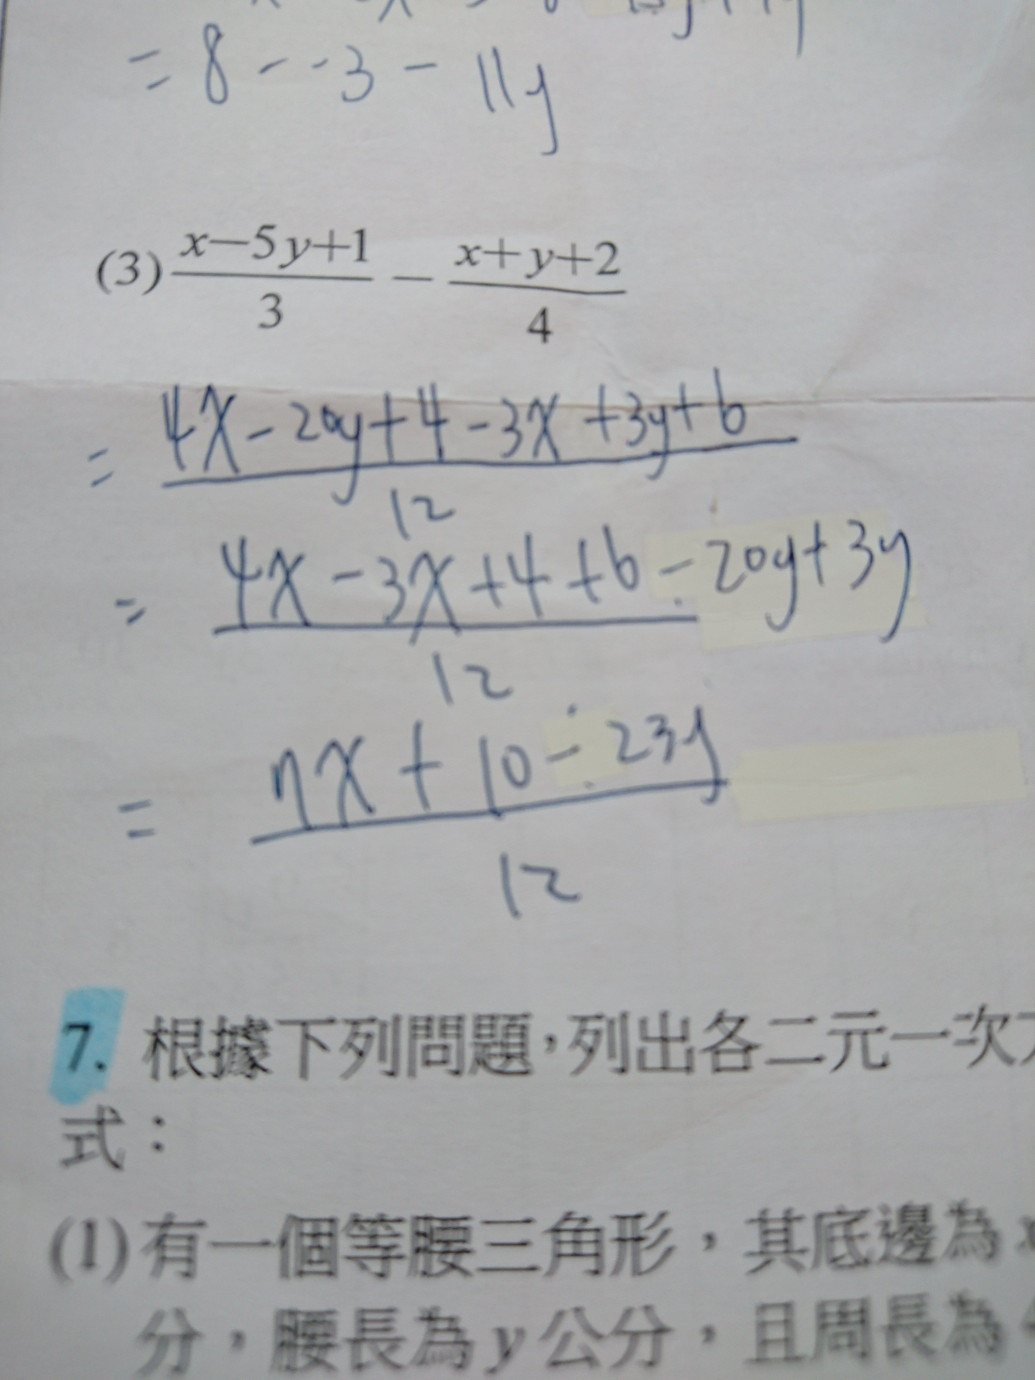 = 8 - -3 - 11y
(3) \frac{x-5y+1}{3} - \frac{x+y+2}{4}
= \frac{4x-20y+4-3x+3y+6}{12}
= \frac{4x-3x+4+6-20y+3y}{12}
= \frac{7x+10-23y}{12}
7. 根據下列問題，列出各二元一次
式：
(1) 有一個等腰三角形，其底邊為 x
分，腰長為 y 公分，且周長為